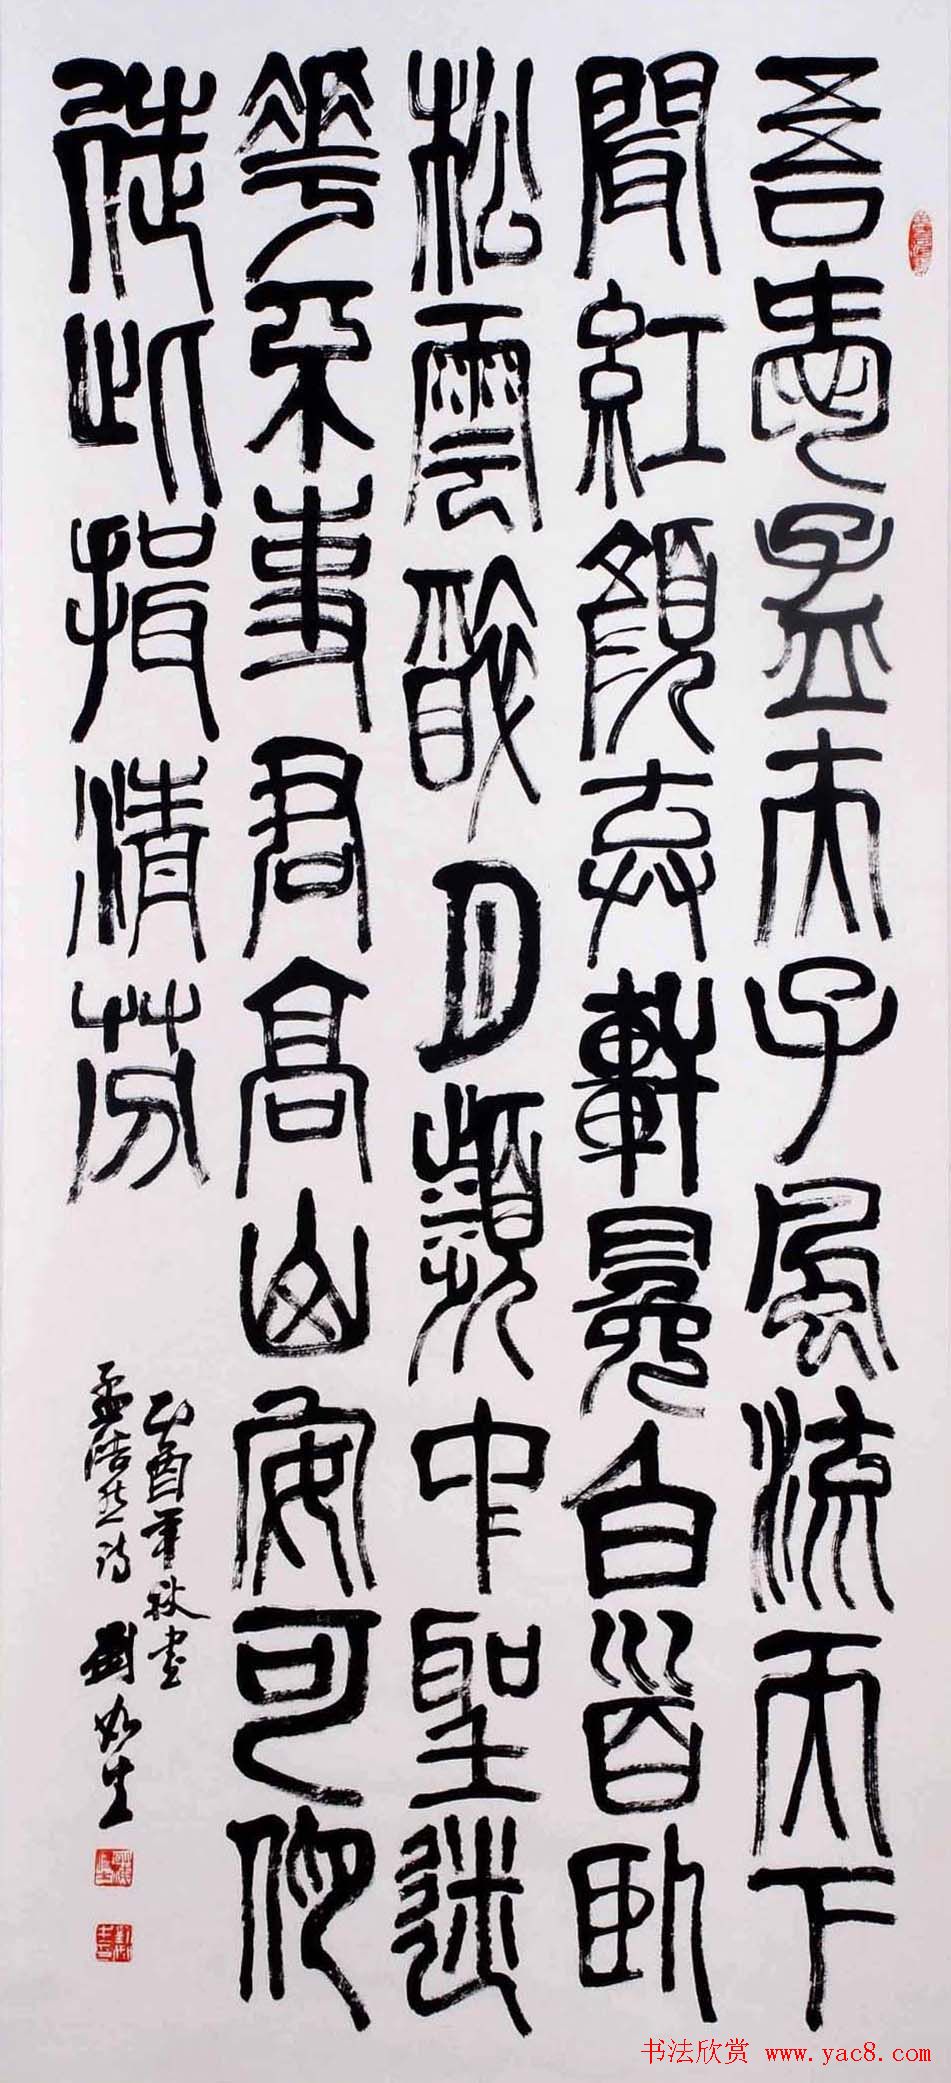 吾愛孟夫子風流天下
聞紅顏弃軒冕白首卧
松雲醉月頻中聖迷
花不事君高山安可仰
徒此揖清芬
乙酉年秋書
孟浩然詩 劉
书法欣赏 www.yac8.com